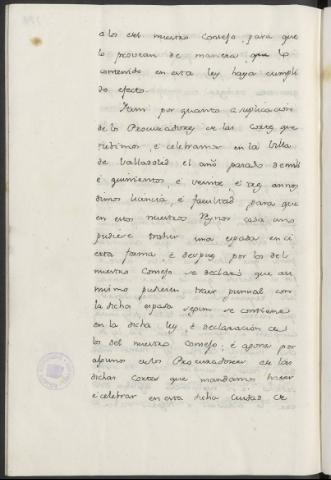 a los del nuestro Consejo, para que
lo provean de manera, que lo
contenido en esta ley haya cumpli
do efecto.
Item por quanto a suplicacion
de los Procuradores de las cortes que
tuvimos, é celebramos en la Villa
de Valladolid el año pasado de mil
é quinientos, é veinte, é tres, annos
dimos licencia, é facultad, para que
en estos nuestros Rynos cada uno
pudiere traher una espada en ci
erta forma, é despues, por los del
nuestro Consejo se declaró que asi
mismo pudieren traer punnal con
la dicha espada segun se contiene
en la dicha ley, é declaración de
los del nuestro consejo, é agora por
algunos de los Procuradores de las
dichas cortes que mandamos hacer
é celebrar en esta dicha Ciudad de